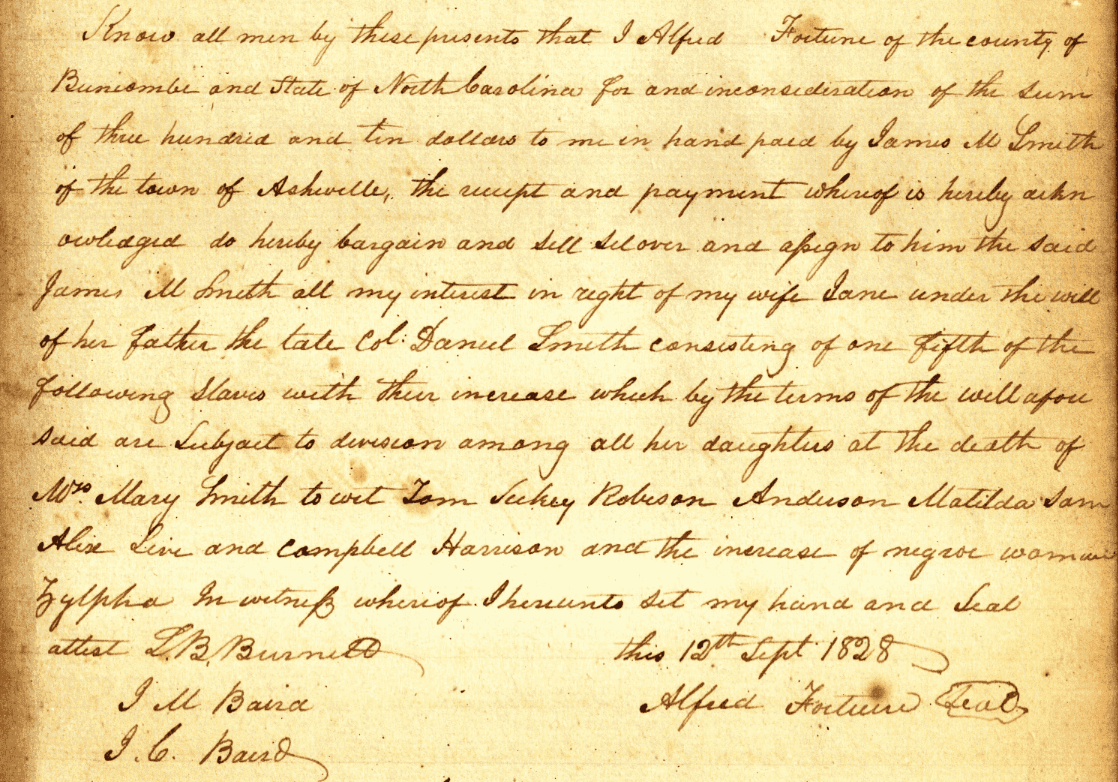 Know all men by these presents that I Alfred Fortune of the county of
Buncombe and State of North Carolina for and inconsideration of the sum
of three hundred and ten dollars to me in hand paid by James M Smith
of the town of Asheville, the receipt and payment whereof is hereby ackn
owledged do hereby bargain and sell set over and assign to him the said
James M Smith all my interest in right of my wife Jane under the will
of her father the late Col. Daniel Smith consisting of one fifth of the
following slaves with their increase which by the terms of the will afore
said are subject to division among all her daughters at the death of
Mrs Mary Smith to wit Tom Suckey Robeson Anderson Matilda Sam
Alex and Campbell Harrison and the increase of negroe woman
Zylpha In witness whereof I hereunto set my hand and Seal
attest this 12th Sept 1828
J M Baird Alfred Fortune Seal
J. C. Baird